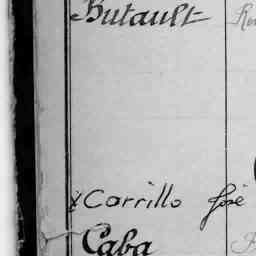 Butault
Carrillo José
Caba